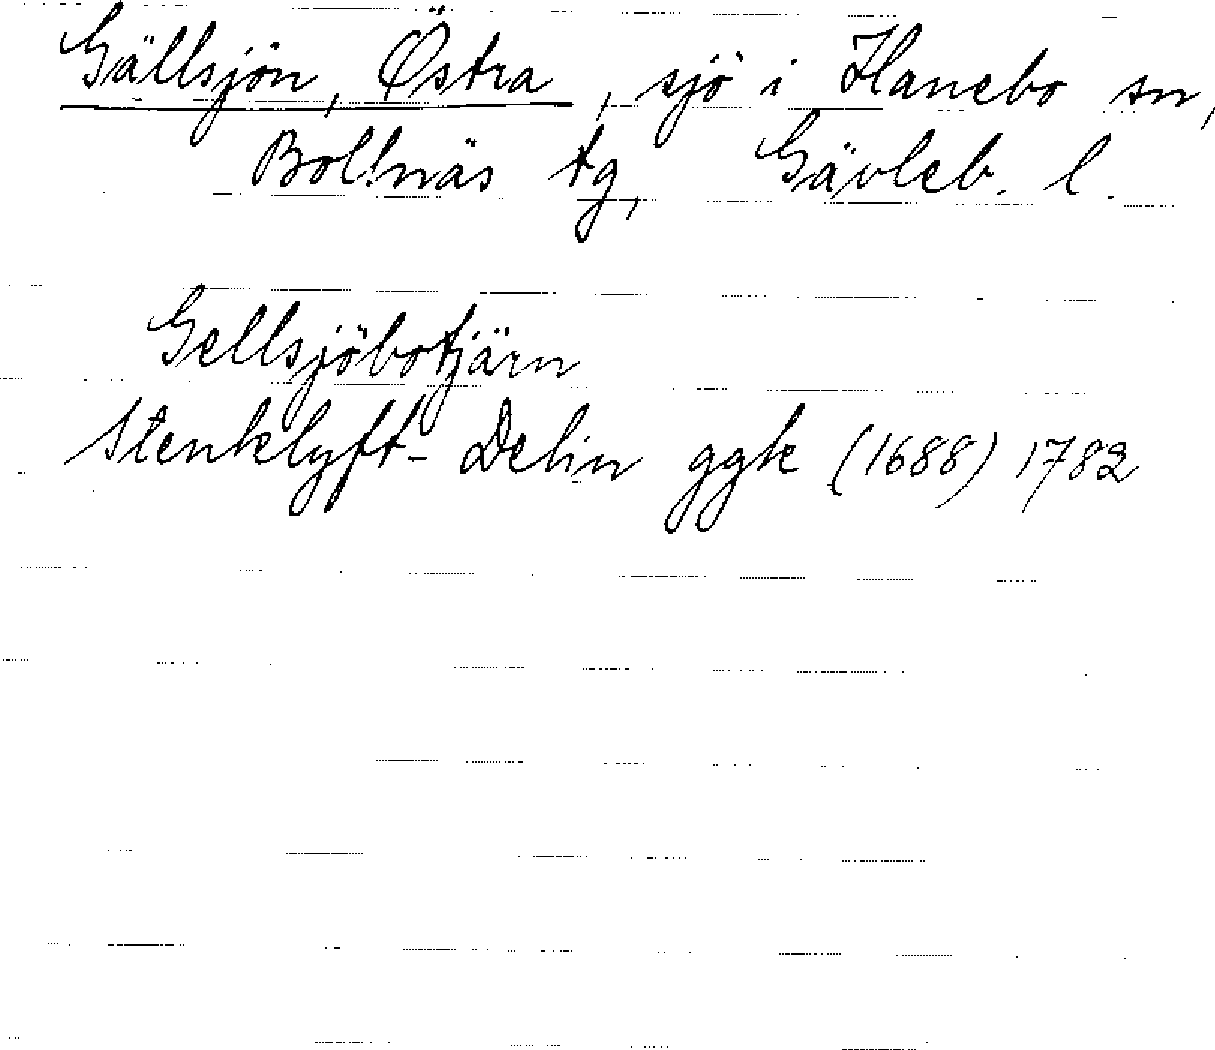 Gällsjön, Östra, sjö i Hanebo sn,
Bollnäs tg, Gävleb. l.
Gellsjöbotjärn
Stenklyft- Delin ggk (1688) 1782